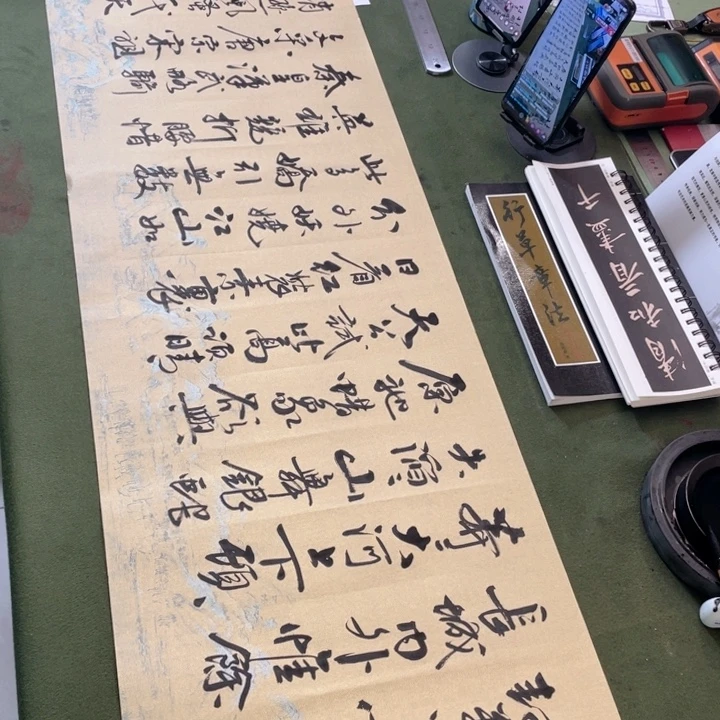 長城内外惟餘
莽大河上下頓
失滔山舞銀蛇
原馳蜡象欲與
天公試比高須晴
日看紅裝素裹
分外妖嬈江山如
此多嬌引無數
英雄競折腰惜
秦皇漢武略輸
文采唐宗宋祖
稍遜風騷一代天
行草章法